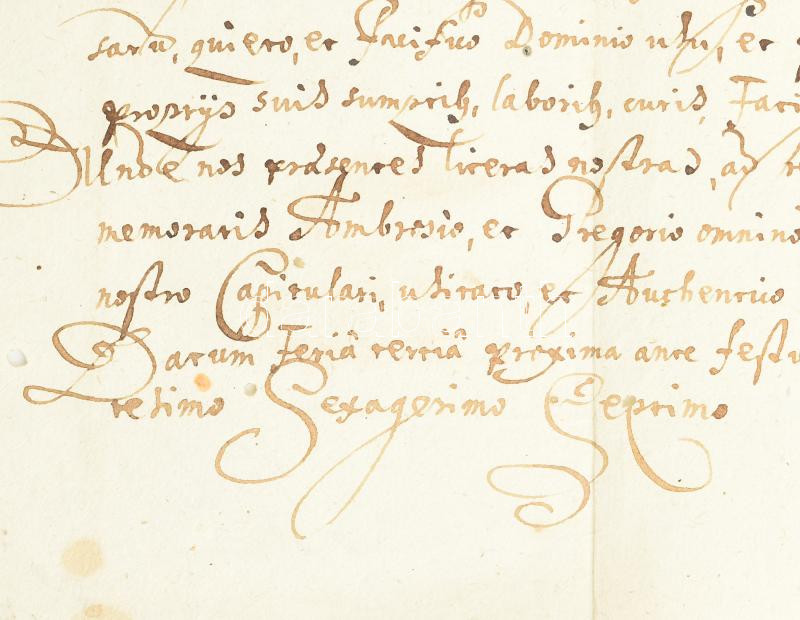 saru, quieto, et Pacifico Dominio uti, et
proprijs suis sumptib, laborib, curis, Faci
nos præsentes literas nostras, ad
memoratis Ambrosio, et Gregorio omnino
nostro Capitulari, usitato, et Authentico
Datum Feriâ tertiâ proxima ante festu
tesimo Sexagesimo Septimo